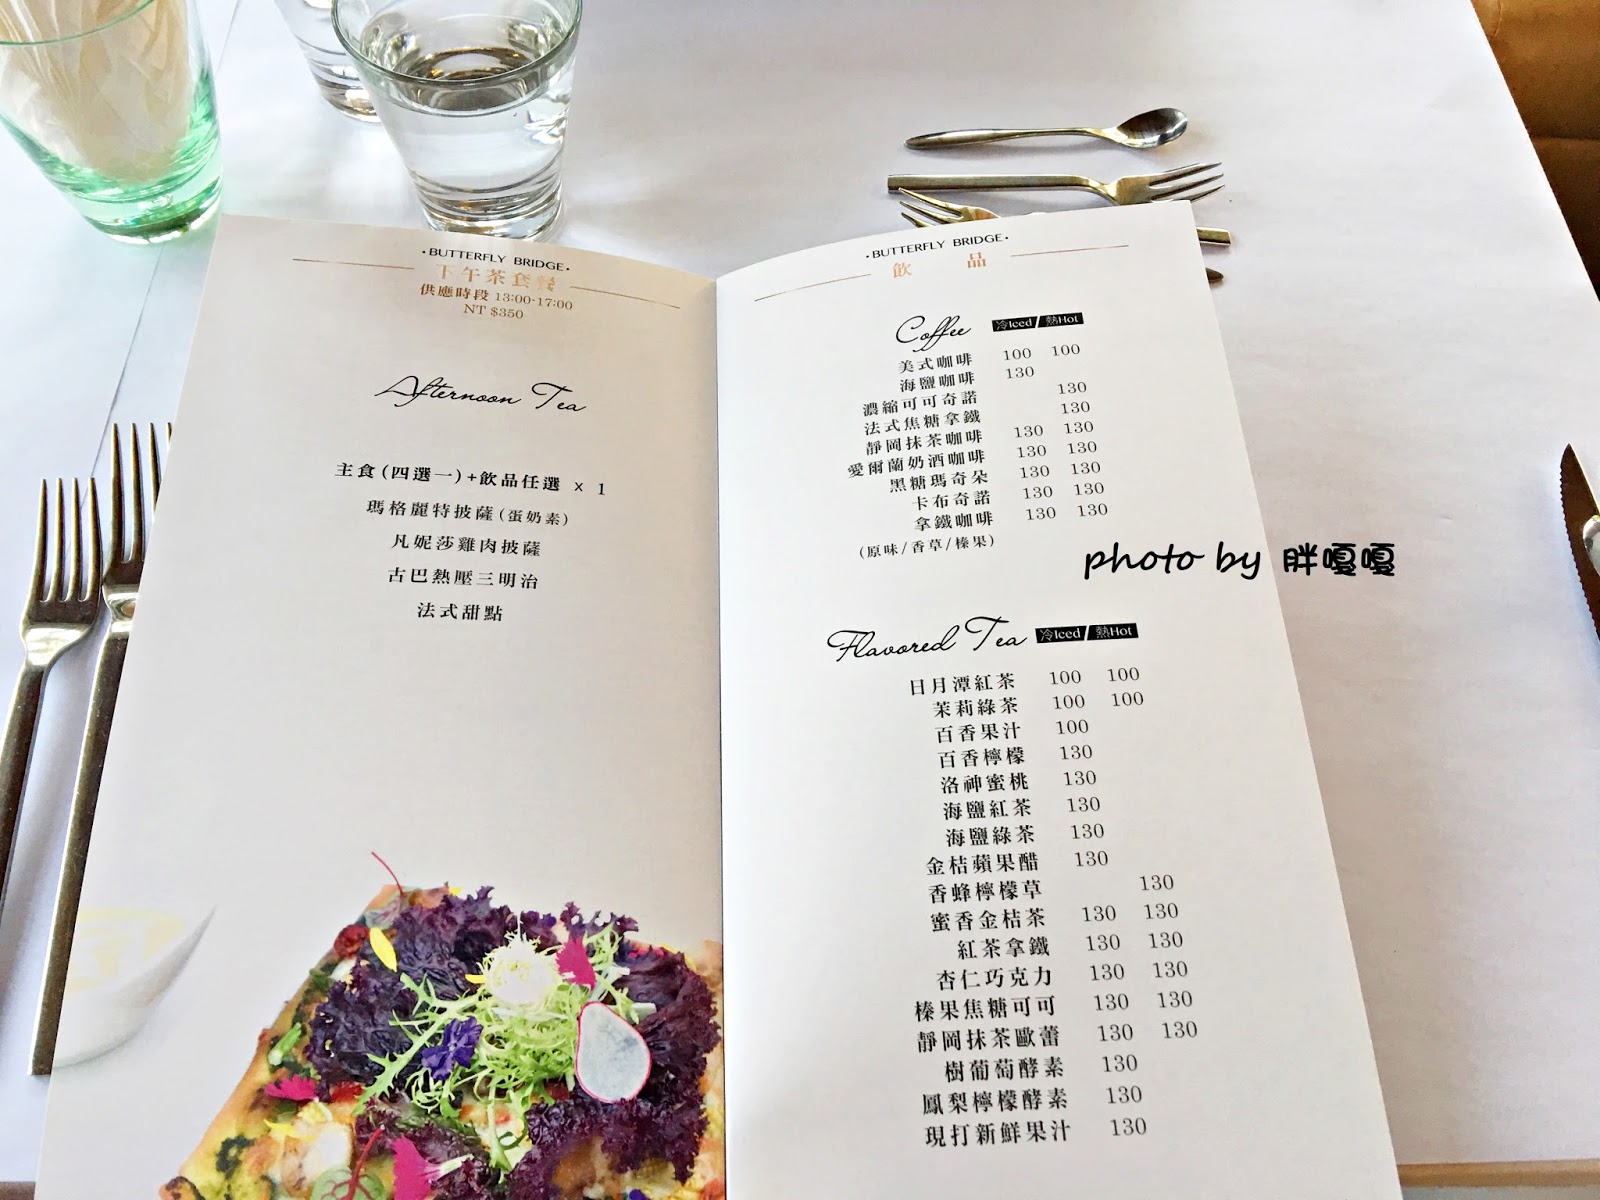 ·BUTTERFLY BRIDGE·
下午茶套餐
供應時段 13:00-17:00
NT $350
Afternoon Tea
主食(四選一)+飲品任選 × 1
瑪格麗特披薩(蛋奶素)
凡妮莎雞肉披薩
古巴熱壓三明治
法式甜點
·BUTTERFLY BRIDGE·
飲 品
Coffee 冷Iced / 熱Hot
美式咖啡 100 100
海鹽咖啡 130
濃縮可可奇諾 130
法式焦糖拿鐵 130
靜岡抹茶咖啡 130 130
愛爾蘭奶酒咖啡 130 130
黑糖瑪奇朵 130 130
卡布奇諾 130 130
拿鐵咖啡 130 130
(原味/香草/榛果)
photo by 胖嘎嘎
Flavored Tea 冷Iced / 熱Hot
日月潭紅茶 100 100
茉莉綠茶 100 100
百香果汁 100
百香檸檬 130
洛神蜜桃 130
海鹽紅茶 130
海鹽綠茶 130
金桔蘋果醋 130
香蜂檸檬草 130
蜜香金桔茶 130 130
紅茶拿鐵 130 130
杏仁巧克力 130 130
榛果焦糖可可 130 130
靜岡抹茶歐蕾 130 130
樹葡萄酵素 130
鳳梨檸檬酵素 130
現打新鮮果汁 130